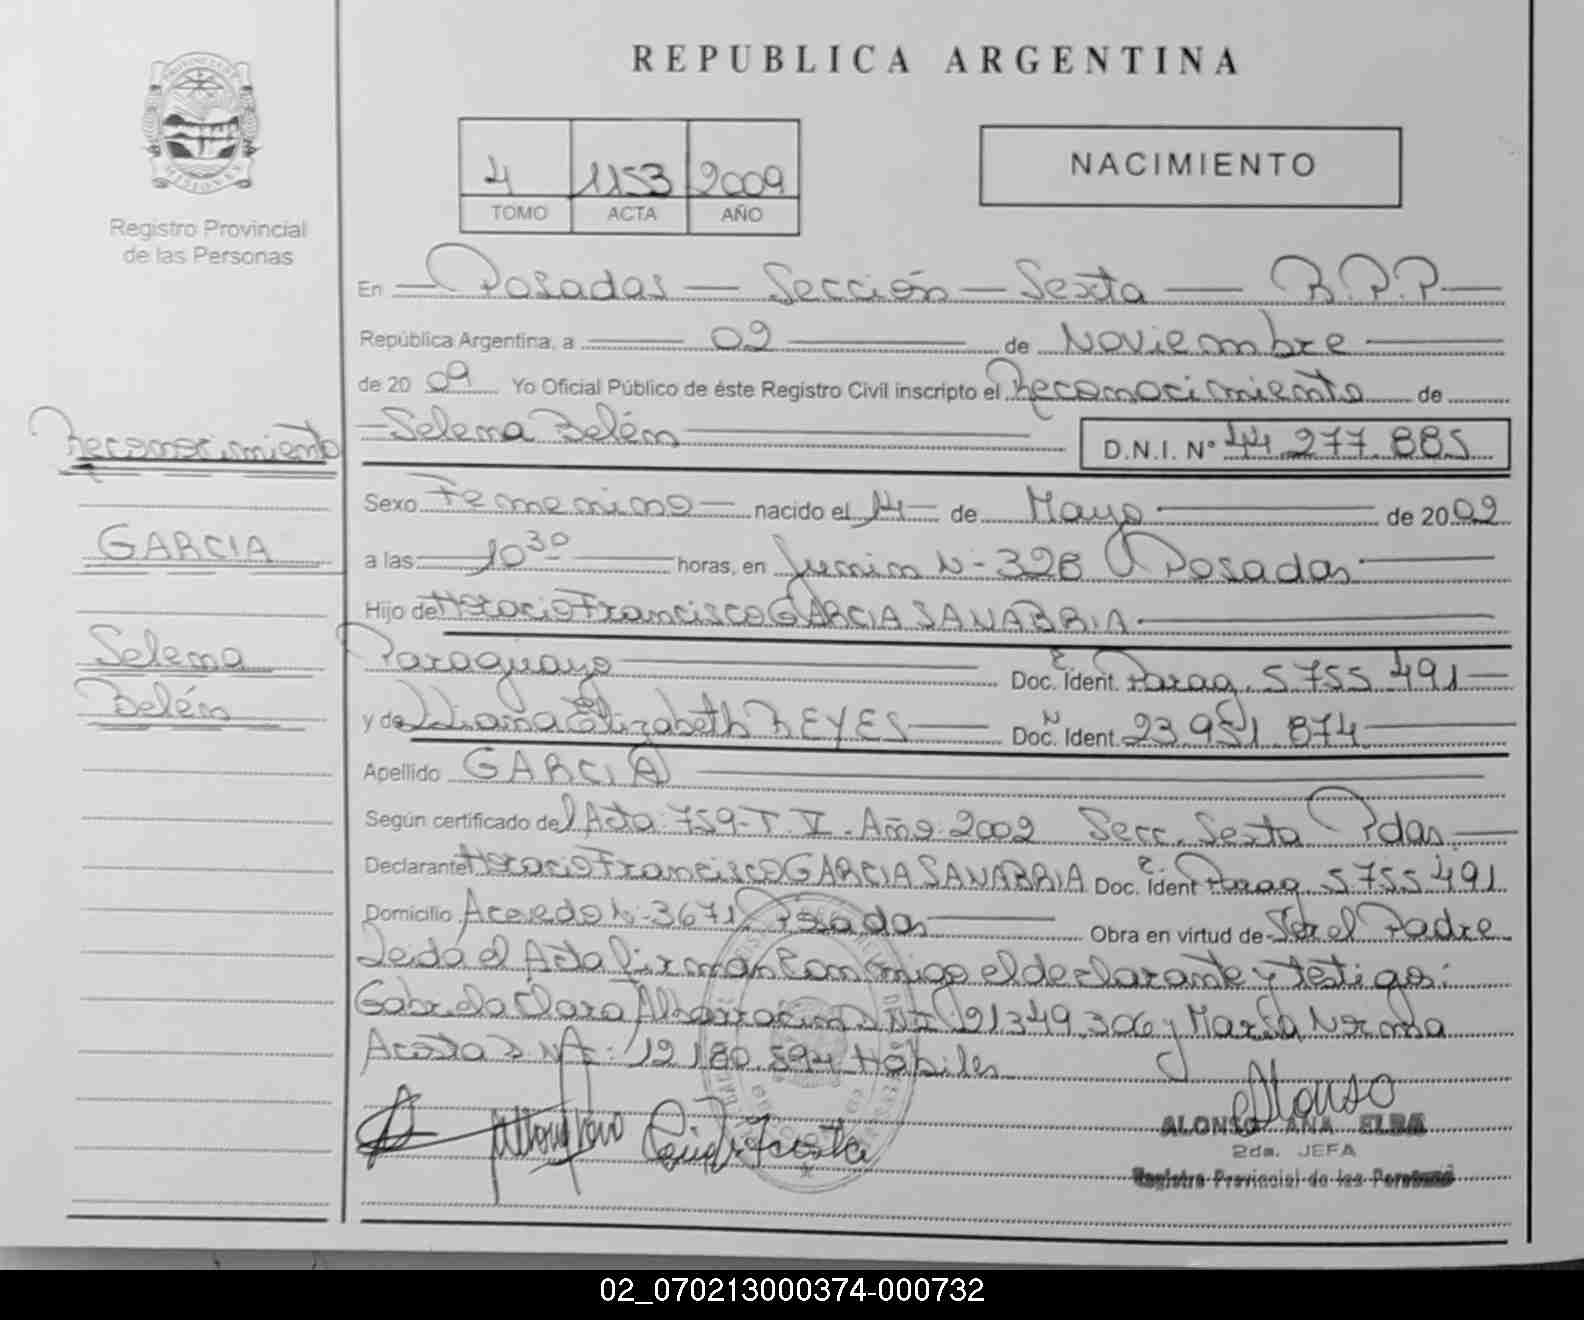 REPUBLICA ARGENTINA
PROVINCIA DE
MISIONES
Registro Provincial
de las Personas
4 1153 2009
TOMO ACTA AÑO
NACIMIENTO
En Posadas - Sección - Sexta - R.P.P.
República Argentina, a 02 de Noviembre
de 2009 Yo Oficial Público de éste Registro Civil inscripto el Reconocimiento de
Selena Belén D.N.I. Nº 44.277.885
Sexo Femenino nacido el 14 de Mayo de 2002
a las 10 30 horas, en Junin Nº 328 Posadas
Hijo de Horacio Francisco GARCIA SANABRIA
Paraguayo Doc. Ident. Parag. 5755491
y de Liliana Elizabeth REYES Doc. Ident. 23.951.874
Apellido GARCIA
Según certificado del Acta 759-T.V. Año 2002 Secc. Sexta Pdas.
Declarante Horacio Francisco GARCIA SANABRIA Doc. Ident Parag. 5755491
Domicilio Acevedo Nº 3671 Posadas Obra en virtud de Ser el Padre
Leida el Acta firman conmigo el declarante y testigos:
Gabriela Clara Albarracin DNI 21.349.306 y María Norma
Acosta DNI: 12.180.594 Hábiles
Alonso
ALONSO ANA ELBA
2da. JEFA
Registro Provincial de las Personas
Reconocimiento
GARCIA
Selena
Belén
02_070213000374-000732